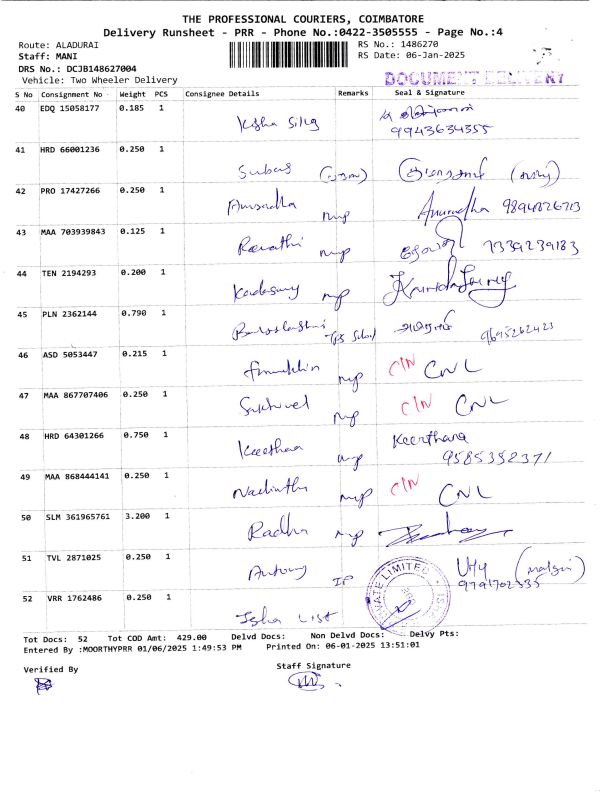 THE PROFESSIONAL COURIERS, COIMBATORE
Delivery Runsheet - PRR - Phone No.:0422-3505555 - Page No.:4
Route: ALADURAI
RS No.: 1486270
Staff: MANI
RS Date: 06-Jan-2025
DRS No.: DCJB148627004
Vehicle: Two Wheeler Delivery
DOCUMENT DELIVERY
S No Consignment No Weight PCS Consignee Details Remarks Seal & Signature
40 EDQ 15058177 0.185 1
9943634355
41 HRD 66001236 0.250 1 Subas
42 PRO 17427266 0.250 1 Anuradha mp Anuradha
43 MAA 703939843 0.125 1 Revathi mp 7339239183
44 TEN 2194293 0.200 1 mp
45 PLN 2362144 0.790 1
9695262423
46 ASD 5053447 0.215 1 mp C/N CNL
47 MAA 867707406 0.250 1 Sakthivel mp C/N CNL
48 HRD 64301266 0.750 1 Keerthana mp Keerthana
9585352371
49 MAA 868444141 0.250 1 mp C/N CNL
50 SLM 361965761 3.200 1 Radha mp
51 TVL 2871025 0.250 1 Antony IP
52 VRR 1762486 0.250 1 Isha List
Tot Docs: 52 Tot COD Amt: 429.00 Delvd Docs: Non Delvd Docs: Delvy Pts:
Entered By :MOORTHYPRR 01/06/2025 1:49:53 PM Printed On: 06-01-2025 13:51:01
Verified By
Staff Signature